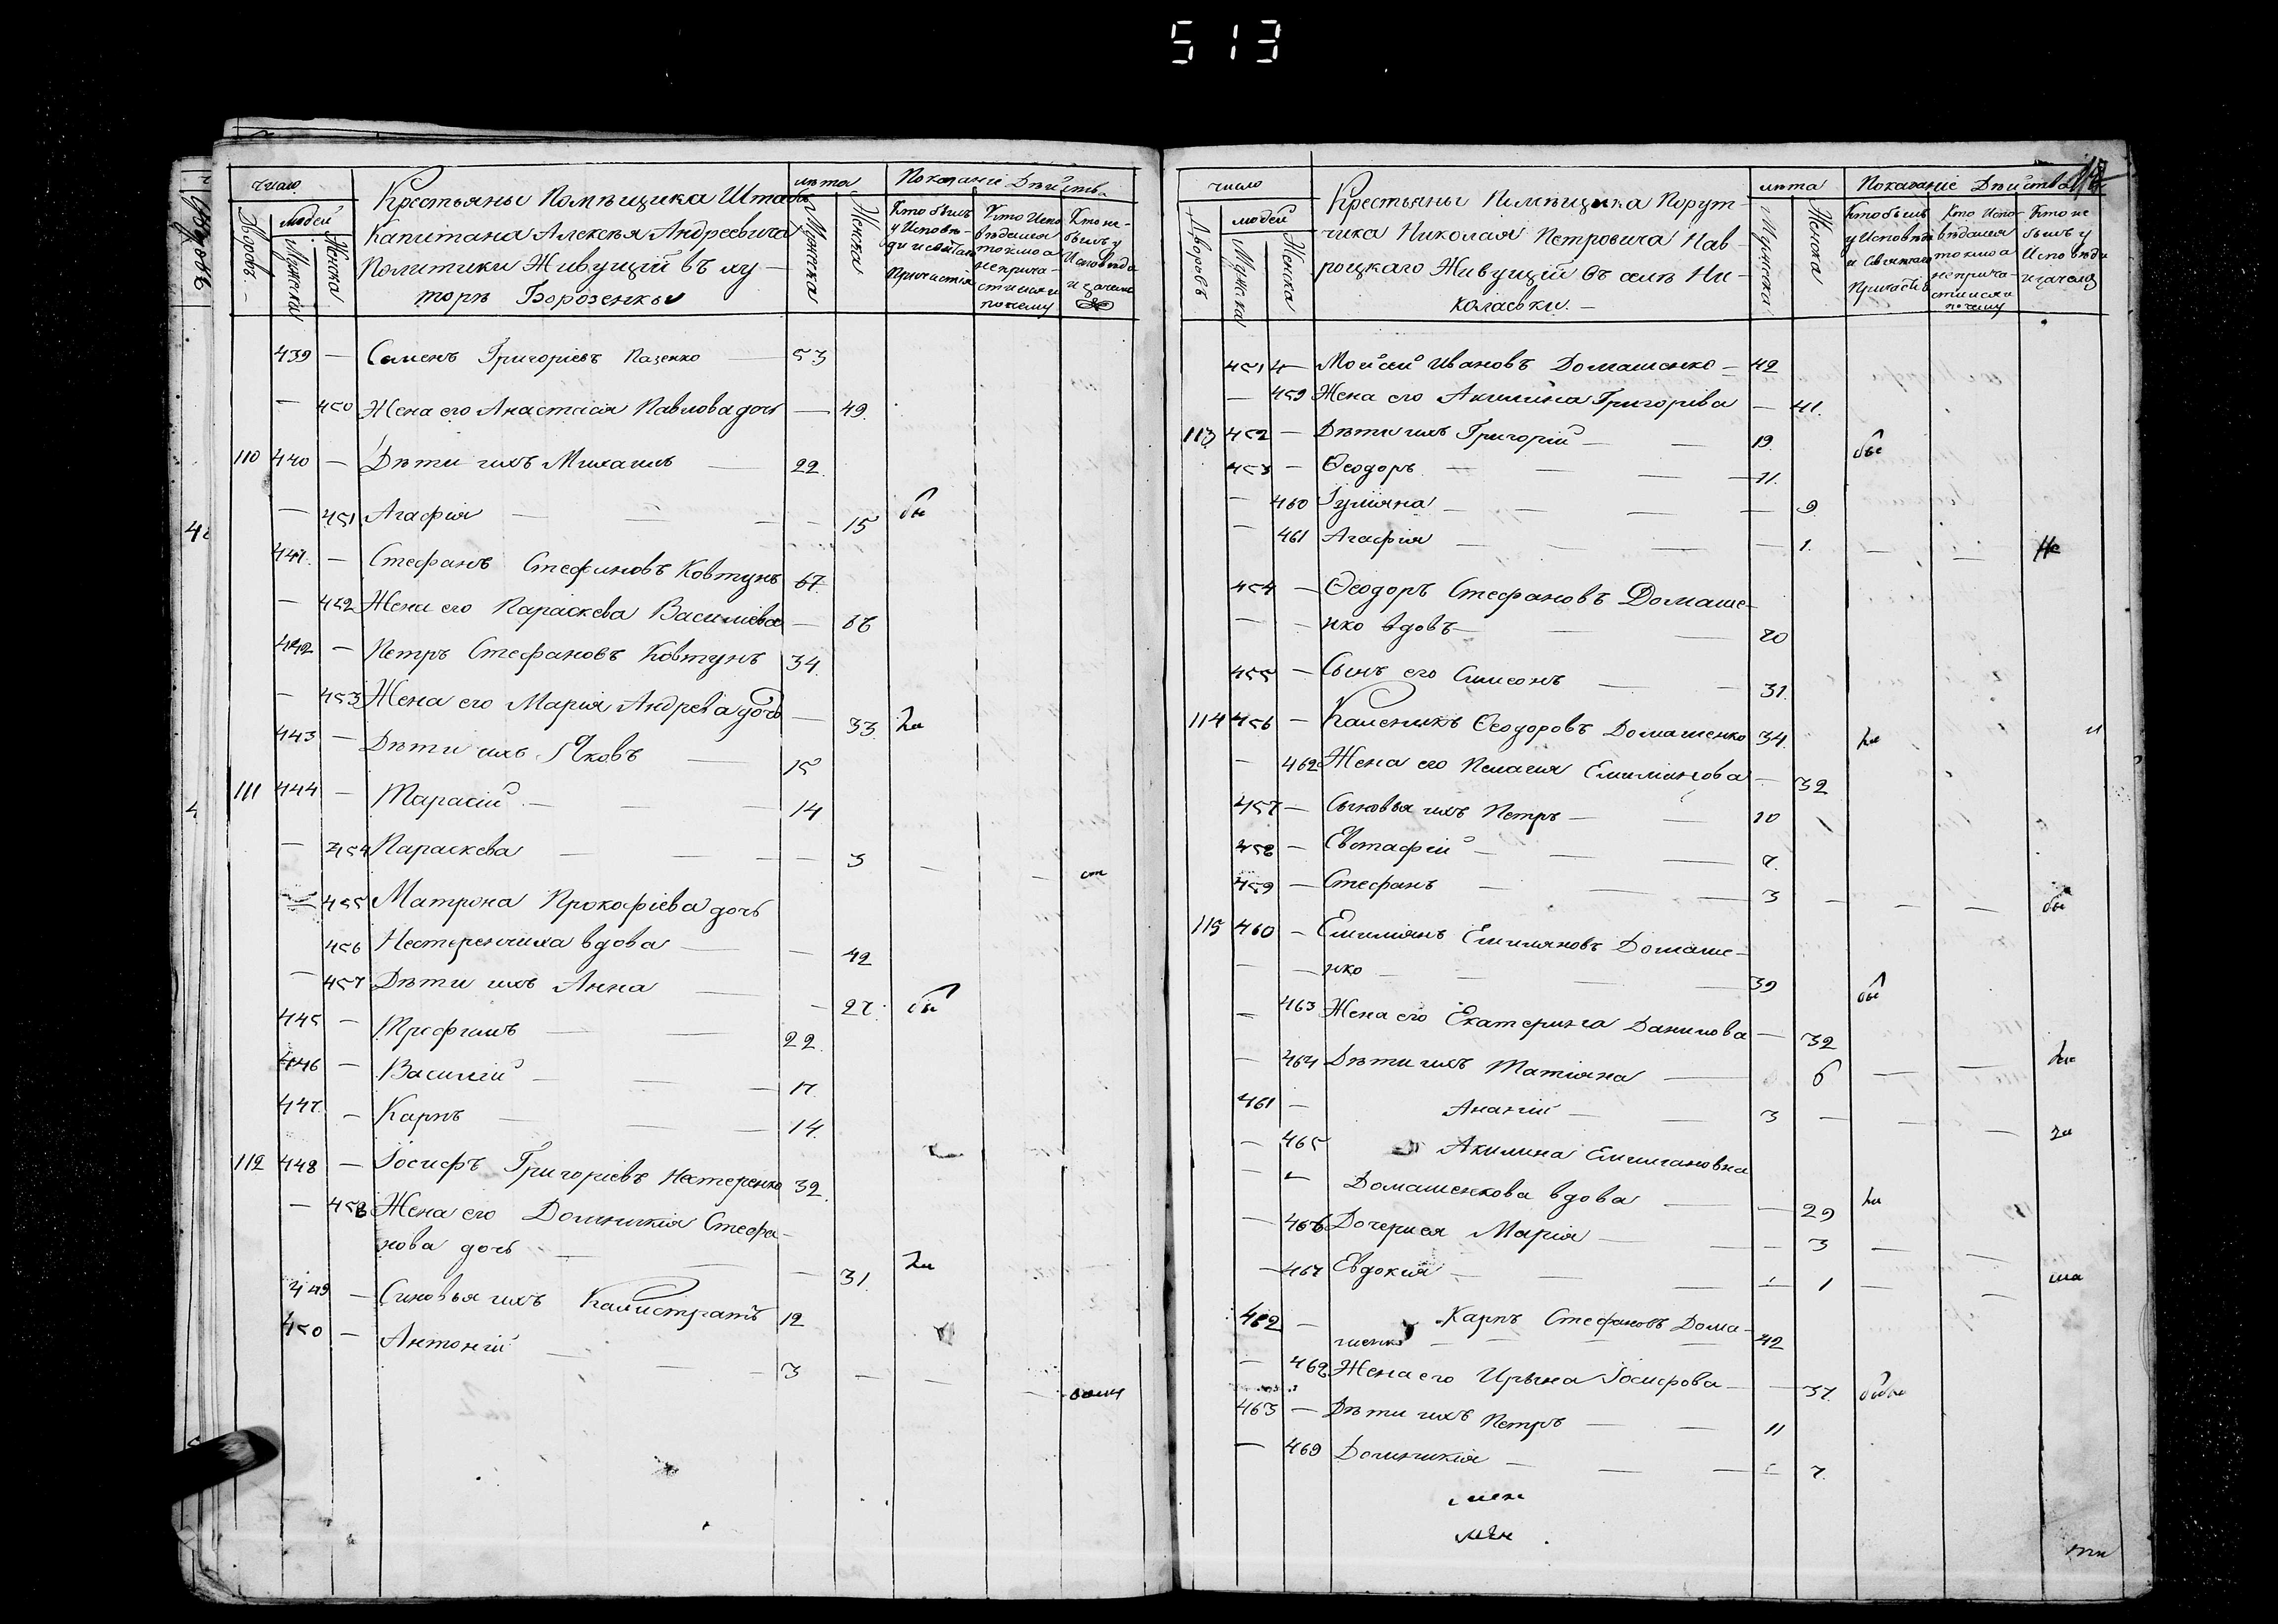 513
число
людей
Дворовъ
Мужеска
Женска
Крестьяны Помѣщика Штабъ
Капитана Алексѣя Андреевича
Политики Живущій въ ху-
торѣ Борозенки
лѣта
Мужеска
Женска
Показаніе Дѣйства
Кто былъ у Исповѣ-
Кто Испо вѣдался токмо а не прича- стился и почему
Кто не- былъ у Исповѣди и зачемъ
439 — Семенъ Григоріевъ Пазенко — 53
— 450 Жена его Анастасія Павлова дочь — 49
110 440 — Дѣти ихъ Михаилъ — 22
— 451 Агафія — — — 15 бы
441 — Стефанъ Стефановъ Ковтунъ 67
— 452 Жена его Параскева Василіева — 66
442 — Петръ Стефановъ Ковтунъ 34
— 453 Жена его Марія Андрѣева дочь — 33
443 — Дѣти ихъ Яковъ — 15
111 444 — Тарасій — — 14
— 454 Параскева — — — 3
— 455 Матрона Прокофіева дочь
456 Нестеренчиха вдова — — 42
— 457 Дѣти ихъ Анна — — 27 бы
445 — Трофимъ — — 22
446 — Василій — — 17
447 — Карпъ — — 14
112 448 — Іосифъ Григоріевъ Нестеренко 32
— 458 Жена его Домникія Стефа-
нова дочь — — — 31
449 — Синовья ихъ Калистратъ 12
450 — Антоній — — 3 — — —
число
людей
Дворовъ
Мужеска
Женска
Крестьяны Помѣщика Порут-
чика Николая Петровича Нав-
роцкаго Живущій въ селѣ Ни-
колаевки. —
лѣта
Мужеска
Женска
Показаніе Дѣйства
Кто былъ у Исповѣди и Святаго Причастія
Кто Испо- вѣдался токмо а не прича- стился и почему
Кто не былъ у Исповѣди и зачемъ
451 — Мойсей Ивановъ Домашенко — 42
— 459 Жена его Акилина Григоріева — 41
113 452 — Дѣти ихъ Григорій — — 19 бы
453 — Ѳеодоръ — — — 11
— 460 Іуліяна — — — — 9
— 461 Агафія — — — — 1 — — Не
454 — Ѳеодоръ Стефановъ Домаше-
— — нко вдовъ — — — 70
455 — Сынъ его Симеонъ — — 31
114 456 — Каленикъ Ѳеодоровъ Домашенко 34
— 462 Жена его Пелагія Емиліянова — 32
457 — Сыновья ихъ Петръ — — 10
458 — Евстафій — — — 7
459 — Стефанъ — — — 3 — — — бы
115 460 — Емиліянъ Емиліяновъ Домаше-
— — нко — — — 39 бы
— 463 Жена его Екатерина Данилова — 32
— 464 Дѣти ихъ Татіяна — 6 — —
461 — Ананій — — 3 — — —
— 465 Акилина Емиліановна
— Домашенкова вдова — — 29
— 466 Дочери ея Марія — — — 3 — —
— 467 Евдокія — — — — 1 — — ша
462 — Карпъ Стефановъ Дома-
шенко — — — 42
— 468 Жена его Ирына Іосифова — — 37
463 — Дѣти ихъ Петръ — — 11
— 469 Домникія — — — — 7